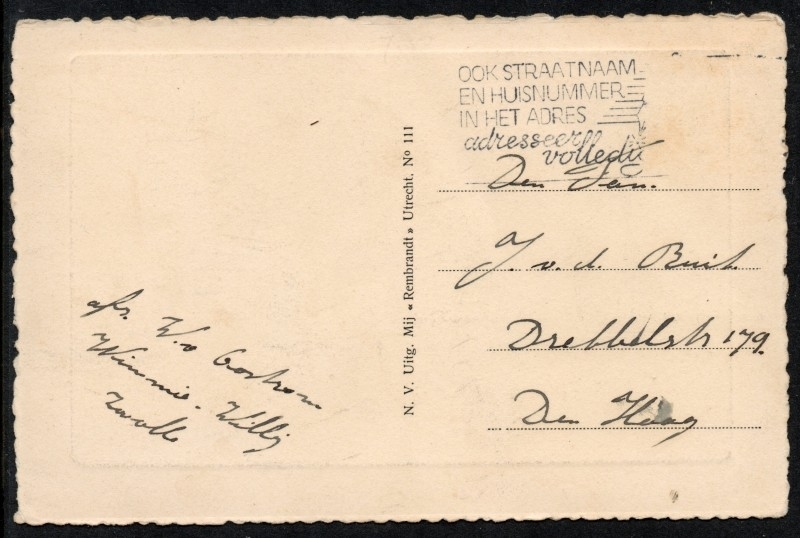 OOK STRAATNAAM
EN HUISNUMMER
IN HET ADRES
adresseer
volledig
Den Heer
J. v. d. Buit.
Drebbelstr 179.
Den Haag
N. V. Uitg. Mij « Rembrandt » Utrecht. Nº 111
afz. W. v Oostrom
Wimmie - Willy
Zwolle